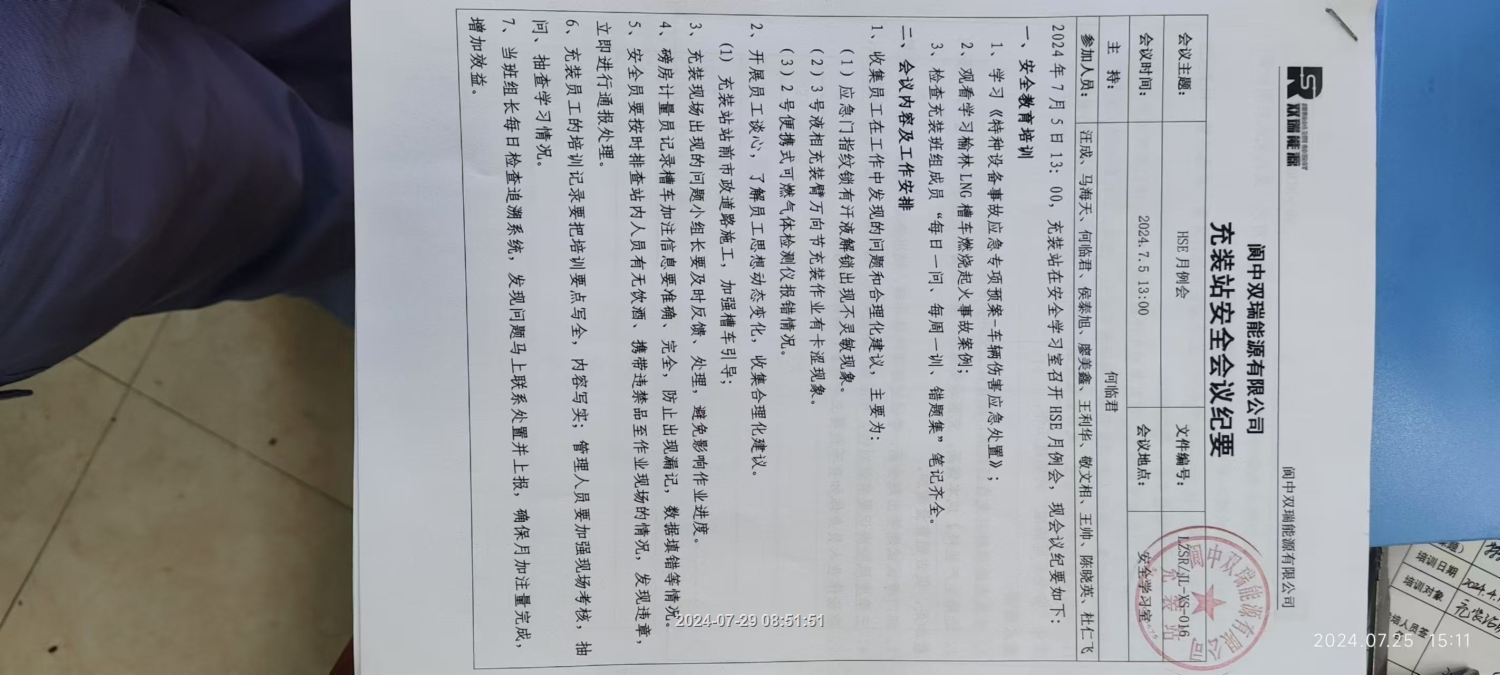 双瑞能源
阆中双瑞能源有限公司
阆中双瑞能源有限公司
充装站安全会议纪要
会议主题： HSE 月例会 文件编号： LZSR/JL-XS-016
会议时间： 2024.7.5 13:00 会议地点： 安全学习室
主 持： 何临君
参加人员： 汪成、马海天、何临君、侯泰旭、廖美鑫、王利华、敬文相、王帅、陈晓英、杜仁飞
2024 年 7 月 5 日 13：00，充装站在安全学习室召开 HSE 月例会，现会议纪要如下：
一、安全教育培训
1、学习《特种设备事故应急专项预案-车辆伤害应急处置》；
2、观看学习榆林 LNG 槽车燃烧起火事故案例；
3、检查充装班组成员“每日一问、每周一训、错题集”笔记齐全。
二、会议内容及工作安排
1、收集员工在工作中发现的问题和合理化建议，主要为：
（1）应急门指纹锁有汗液解锁出现不灵敏现象。
（2）3 号液相充装臂万向节充装作业有卡涩现象。
（3）2 号便携式可燃气体检测仪报错情况。
2、开展员工谈心，了解员工思想动态变化，收集合理化建议。
（1）充装站站前市政道路施工，加强槽车引导；
3、充装现场出现的问题小组长要及时反馈、处理，避免影响作业进度。
4、磅房计量员记录槽车加注信息要准确、完全，防止出现漏记，数据填错等情况。
5、安全员要按时排查站内人员有无饮酒、携带违禁品至作业现场的情况，发现违章，
立即进行通报处理。
6、充装员工的培训记录要把培训要点写全，内容写实；管理人员要加强现场考核，抽
问、抽查学习情况。
7、当班组长每日检查追溯系统，发现问题马上联系处置并上报，确保月加注量完成，
增加效益。
阆中双瑞能源有限公司
充装站
培训日期
培训对象
2024-07-29 08:51:51
2024.07.25 15:11